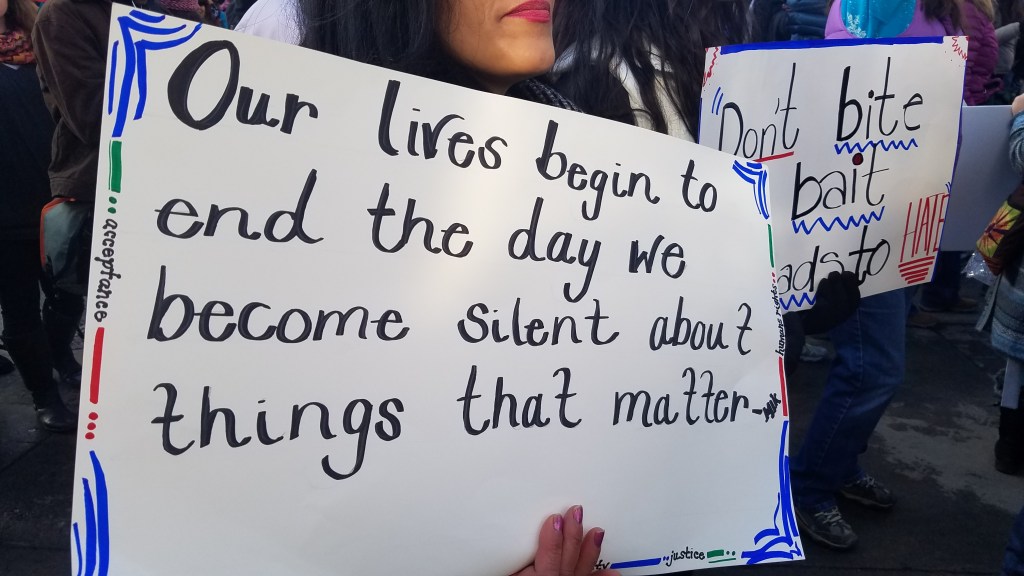 Our lives begin to
end the day we
become silent about
things that matter - MLK
acceptance
human rights
justice
"Don't bite
bait
to HATE"